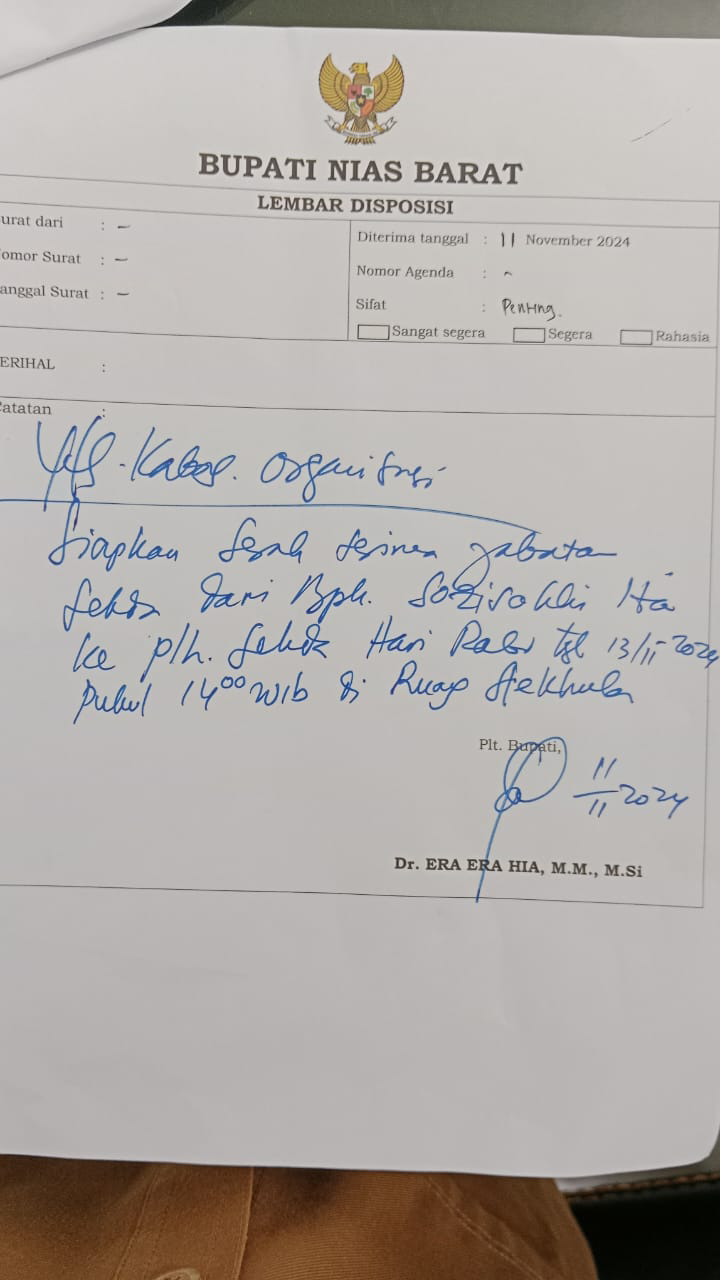 BUPATI NIAS BARAT
LEMBAR DISPOSISI
urat dari : -
omor Surat : -
anggal Surat : -
Diterima tanggal : 11 November 2024
Nomor Agenda : -
Sifat : Penting.
Sangat segera Segera Rahasia
ERIHAL :
Catatan :
Kabag. Organisasi
Siapkan Serah terima jabatan
Sekda dari Bpk. Hia
ke plh. Sekda Hari Rabu tgl 13/11-2024
Pukul 14 00 WIB di Ruang
Plt. Bupati,
11/11 2024
Dr. ERA ERA HIA, M.M., M.Si